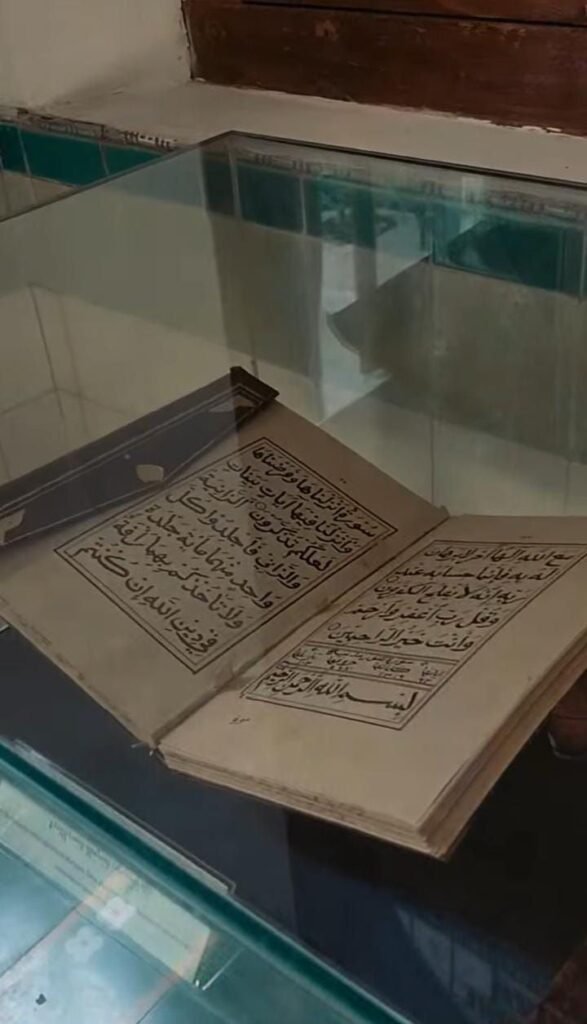 مع الله الها اخر لا برهان
له به فانما حسابه عند
ربه انه لا يفلح الكفرون
وقل رب اغفر وارحم
وانت خير الراحمين
بسم الله الرحمن الرحيم
سورة انزلناها وفرضناها
وانزلنا فيها ايات بينات
لعلكم تذكرون الزانية
والزاني فاجلدوا كل
واحد منهما مائة جلدة
ولا تاخذكم بهما رافة
في دين الله ان كنتم